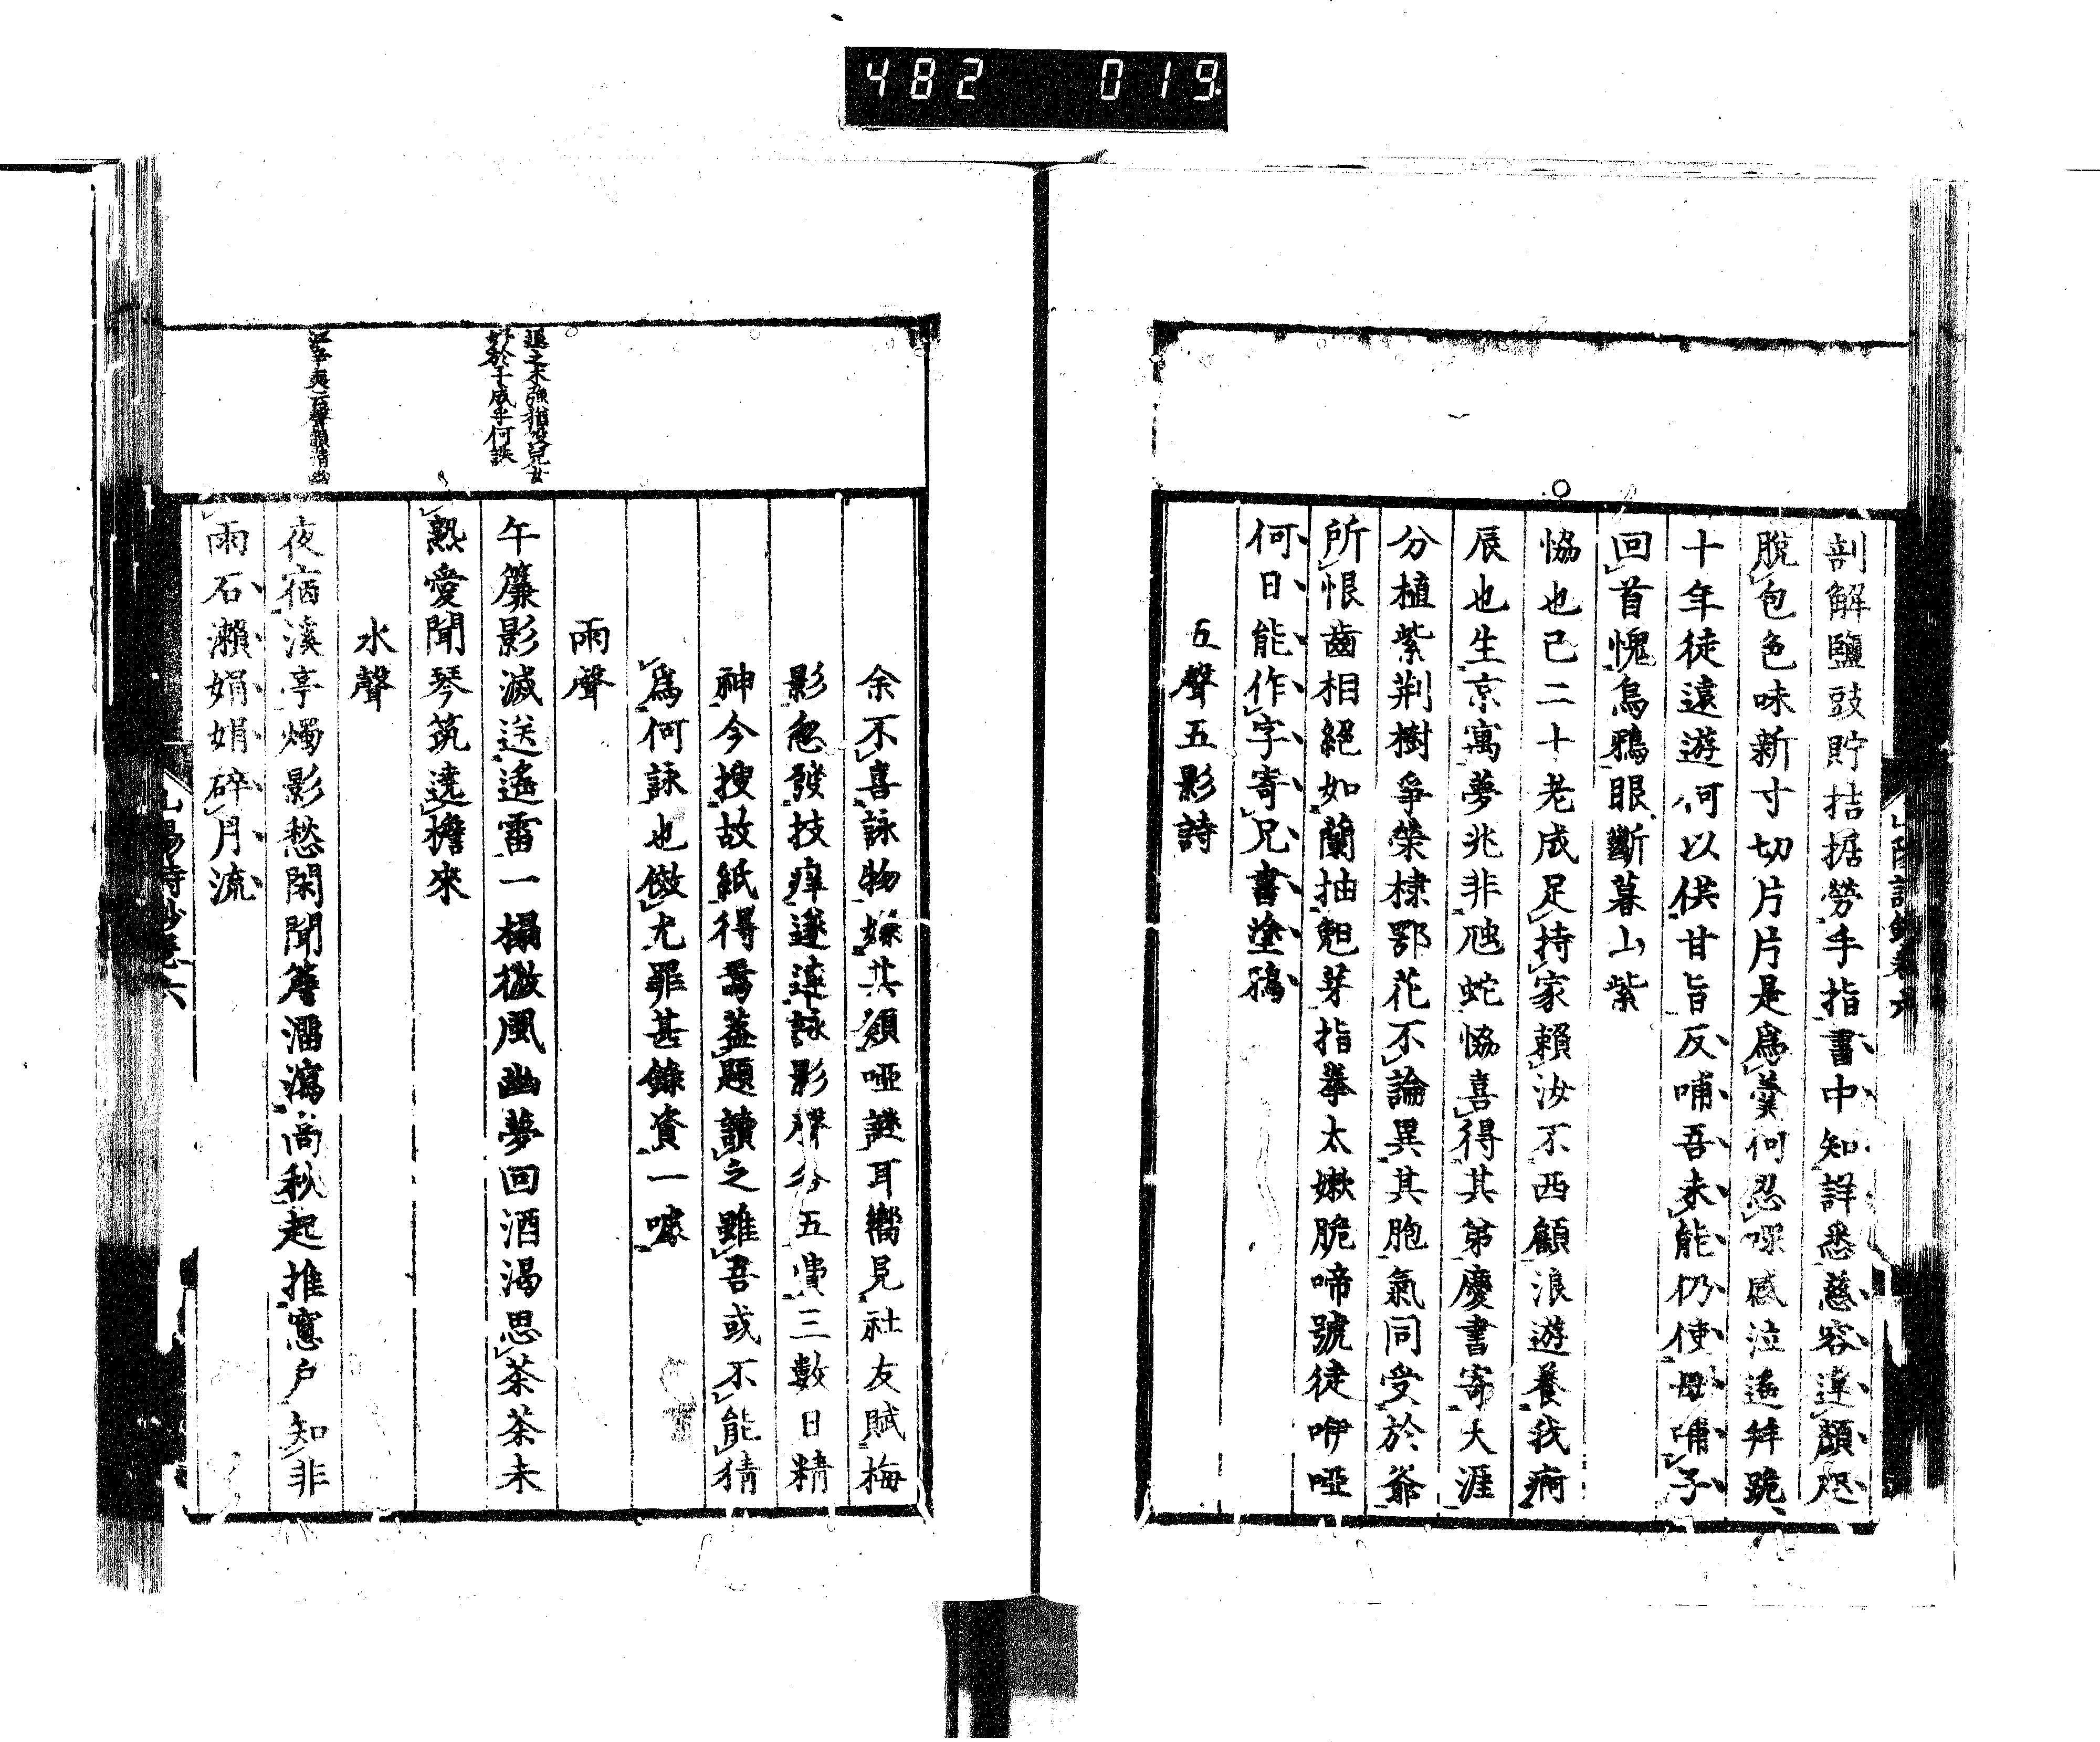 482 019
剖解鹽豉貯拮据勞手指書中知詳悉慈容違顏咫
脫包色味新寸切片片是爲羹何忍啜感泣遙拜跪
十年徒遠遊何以供甘旨反哺吾未能仍使母哺子
回首愧烏鴉眼斷暮山紫
協也已二十老成足持家賴汝不西顧浪遊養我痾
辰也生京寓夢兆非虺蛇協喜得其弟慶書寄天涯
分植紫荆樹爭榮棣鄂花不論異其胞氣同受於爺
所恨齒相絕如蘭抽魁芽指拳太嫩脆啼號徒咿啞
何日能作字寄兄書塗鴉
五聲五影詩
余不喜詠物嫌其類啞謎耳嚮見社友賦梅
影忽發技癢遂連詠影聲各五費三數日精
神今搜故紙得焉蓋題讀之雖吾或不能猜
爲何詠也傚尤罪甚錄資一噱
雨聲
午簾影滅送遙雷一榻微風幽夢回酒渴思茶茶未
熟愛聞琴筑遶檐來
水聲
夜宿溪亭燭影愁閑聞簷溜瀉高秋起推窻戶知非
雨石瀨娟娟碎月流
山陽詩鈔卷六